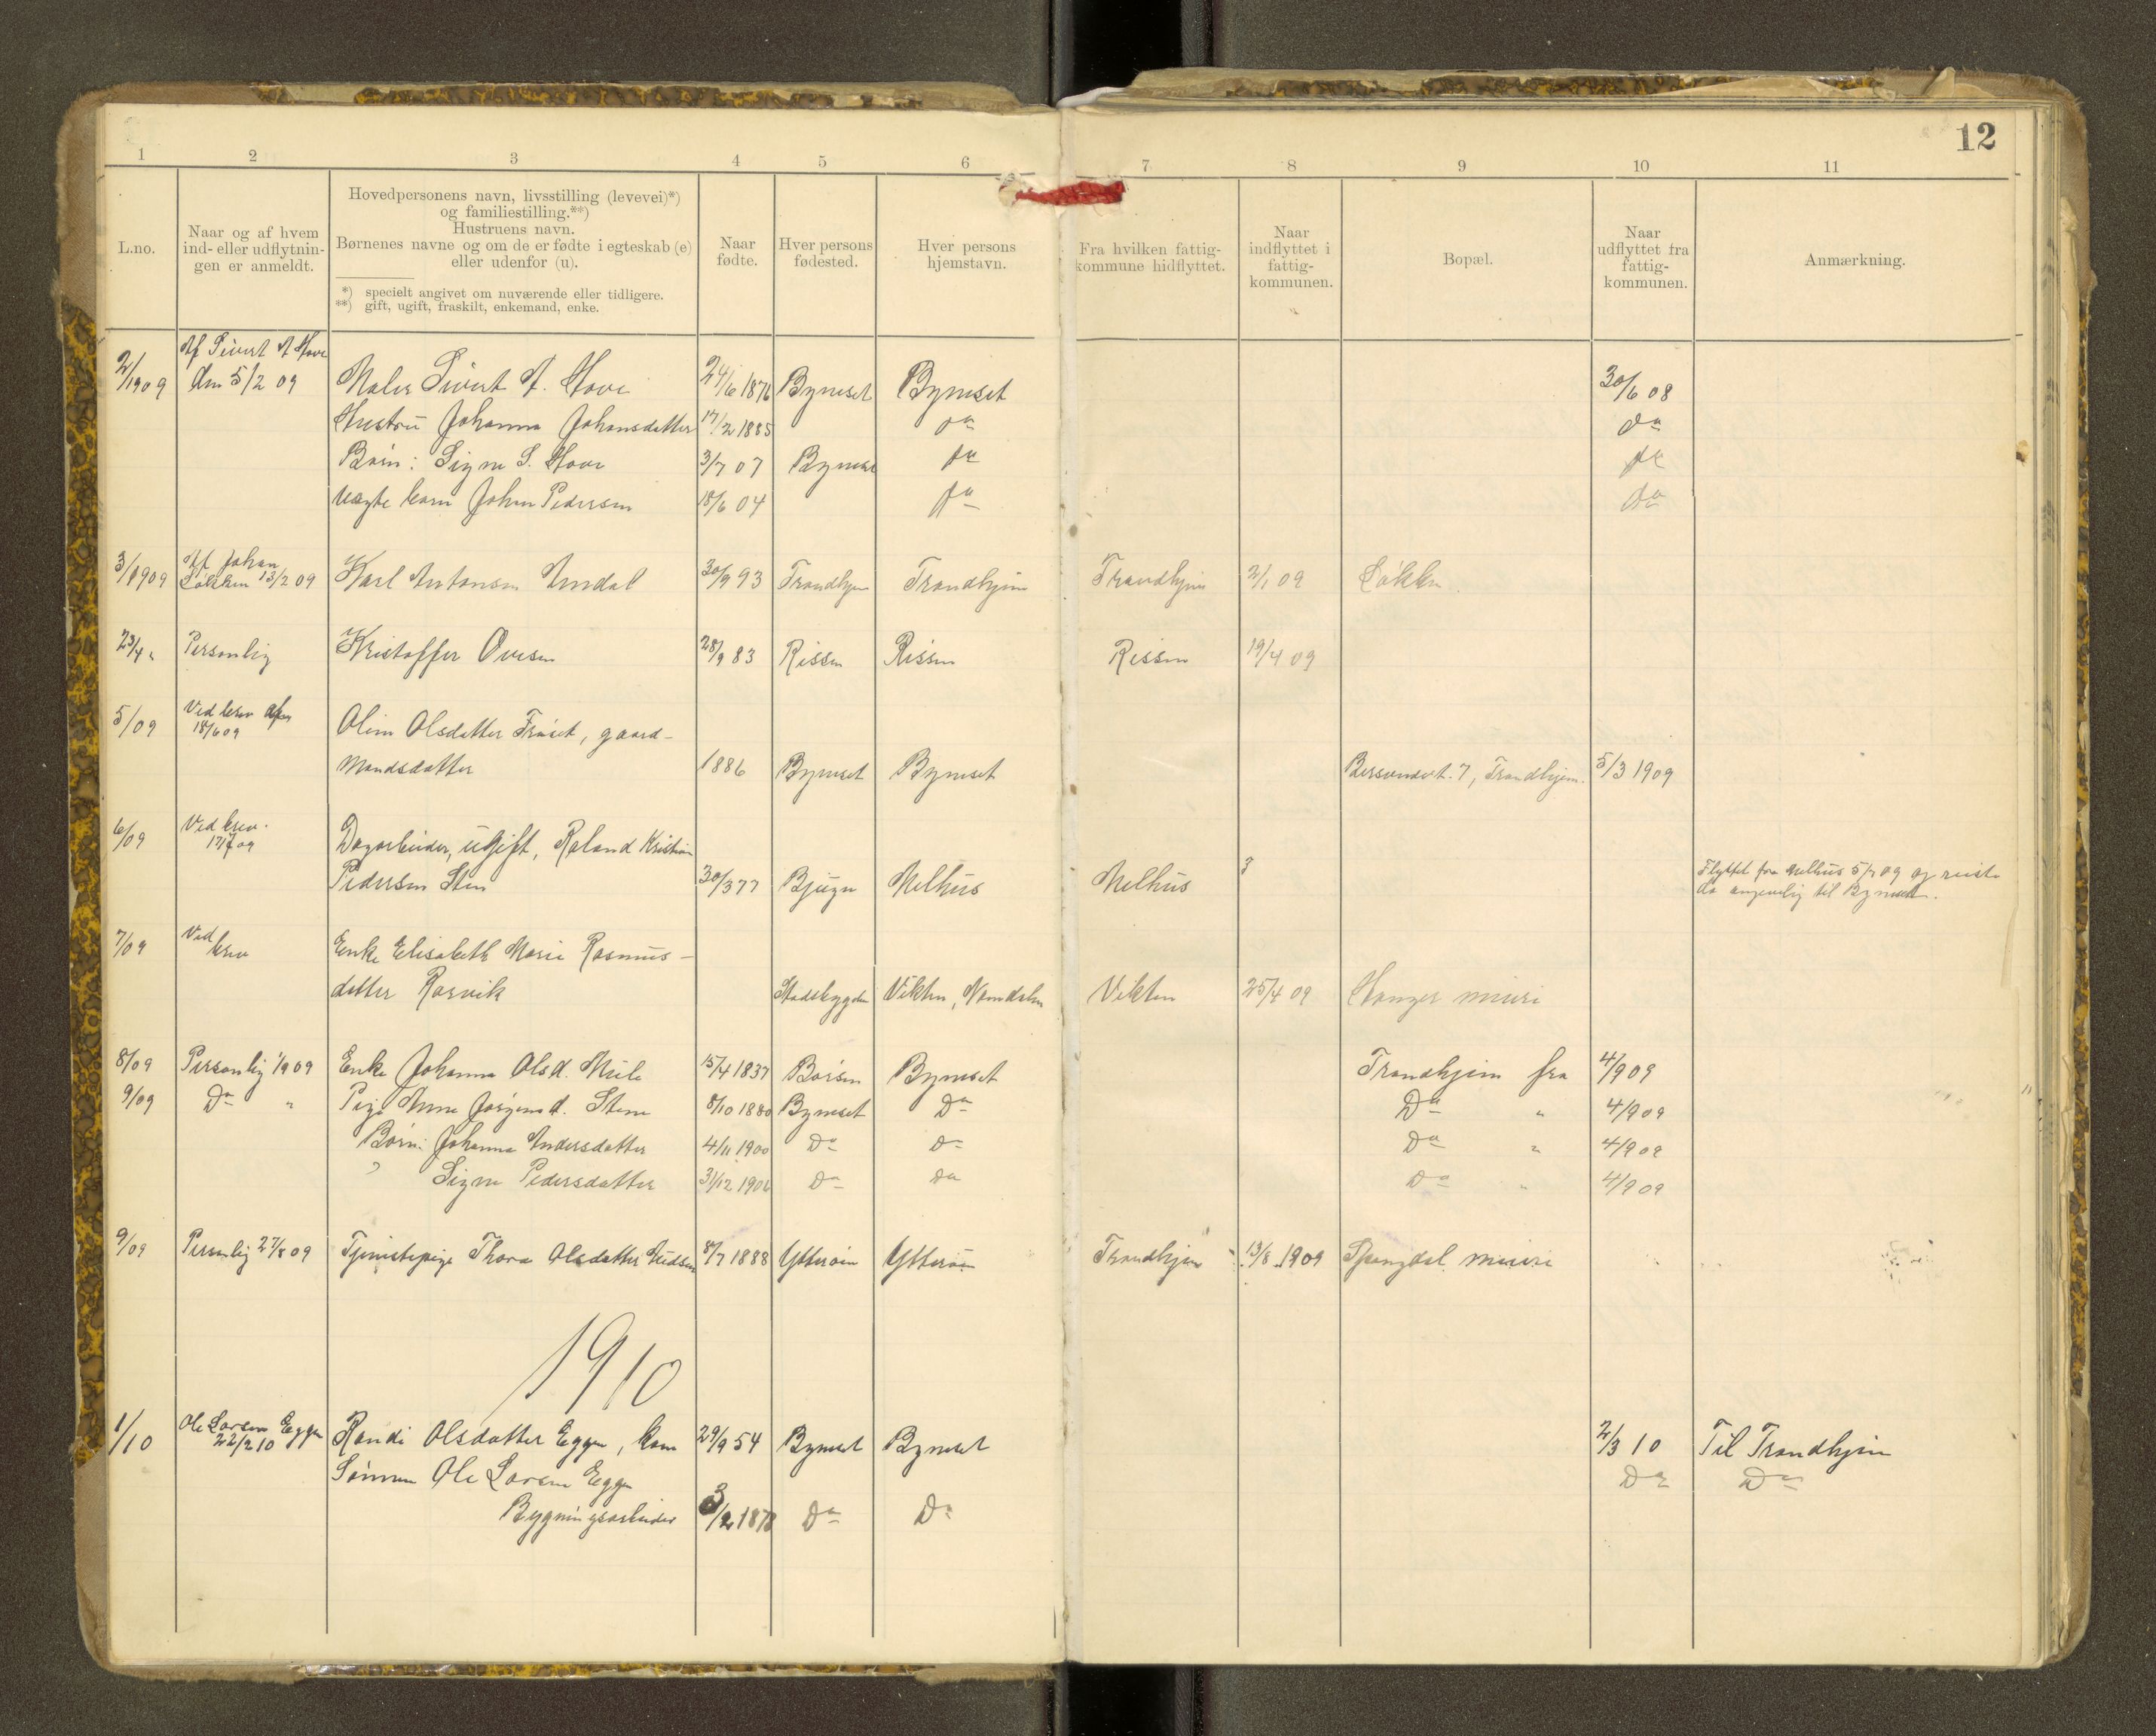 12
1 2 3 4 5 6 7 8 9 10 11
L.no.
Naar og af hvem
ind- eller udflytnin-
gen er anmeldt.
Hovedpersonens navn, livsstilling (levevei)*)
og familiestilling.**)
Hustruens navn.
Børnenes navne og om de er fødte i egteskab (e)
eller udenfor (u).
*) specielt angivet om nuværende eller tidligere.
**) gift, ugift, fraskilt, enkemand, enke.
Naar
fødte.
Hver persons
fødested.
Hver persons
hjemstavn.
Fra hvilken fattig-
kommune hidflyttet.
Naar
indflyttet i
fattig-
kommunen.
Bopæl.
Naar
udflyttet fra
fattig-
kommunen.
Anmærkning.
Af Sivert A Hove
2/1909 den 5/2 09 Maler Sivert A. Hove 24/6 1876 Bynesset Bynesset 30/6 08
Hustru Johanna Johansdatter 17/2 1885 da da
Børn: Signe S. Hove 3/7 07 Byneset da da
uægte barn Johan Pedersen 18/6 04 da da
Af Johan
3/1909 Løkken 13/2 09 Karl Antonsen Amdal 30/9 93 Trondhjem Trondhjem Trondhjem 2/1 09 Løkken
23/4 " Personlig Kristoffer Ovesen 28/9 83 Rissen Rissen Rissen 19/4 09
5/09 Ved brev
18/6 09 Olina Olsdatter Frøset, gaard-
mandsdatter 1886 Byneset Byneset 7, Trondhjem. 5/3 1909
6/09 Ved brev.
17/7 09 Dagarbeider, ugift, Roland Kristian
Pedersen Sten 30/3 77 Bjugn Melhus Melhus ? Flyttet fra Melhus 5/7 09 og reiste
da angivelig til Byneset.
7/09 Ved
brev Enke Elisabeth Marie Rasmus-
datter Rørvik Stadsbygden Vikten, Namdalen Vikten 25/4 09 Hanger
8/09 Personlig 1/9 09 Enke Johanna Olsd. Mule 15/4 1837 Børsen Byneset Trondhjem fra 4/9 09
9/09 Da " Pige Anne Jørgensd. Stene 8/10 1880 Byneset Da Da " 4/9 09
Børn: Johanna Andersdatter 4/11 1900 Da Da Da " 4/9 09
" Signe Pedersdatter 31/12 1906 Da Da Da " 4/9 09
9/09 Personlig 27/8 09 Tjenestepige Thora Olsdatter 8/7 1888 Ytterøen Ytterøen Trondhjem 13/8 1909 Spongdal
1910
1/10 Ole Lorson Eggen
22/2 10 Randi Olsdatter Eggen, kom 29/9 54 Byneset Byneset 2/3 10 Til Trondhjem
Sønnen Ole Larsen Eggen Da Da
Bygningsarbeider 3/2 1878 Da Da